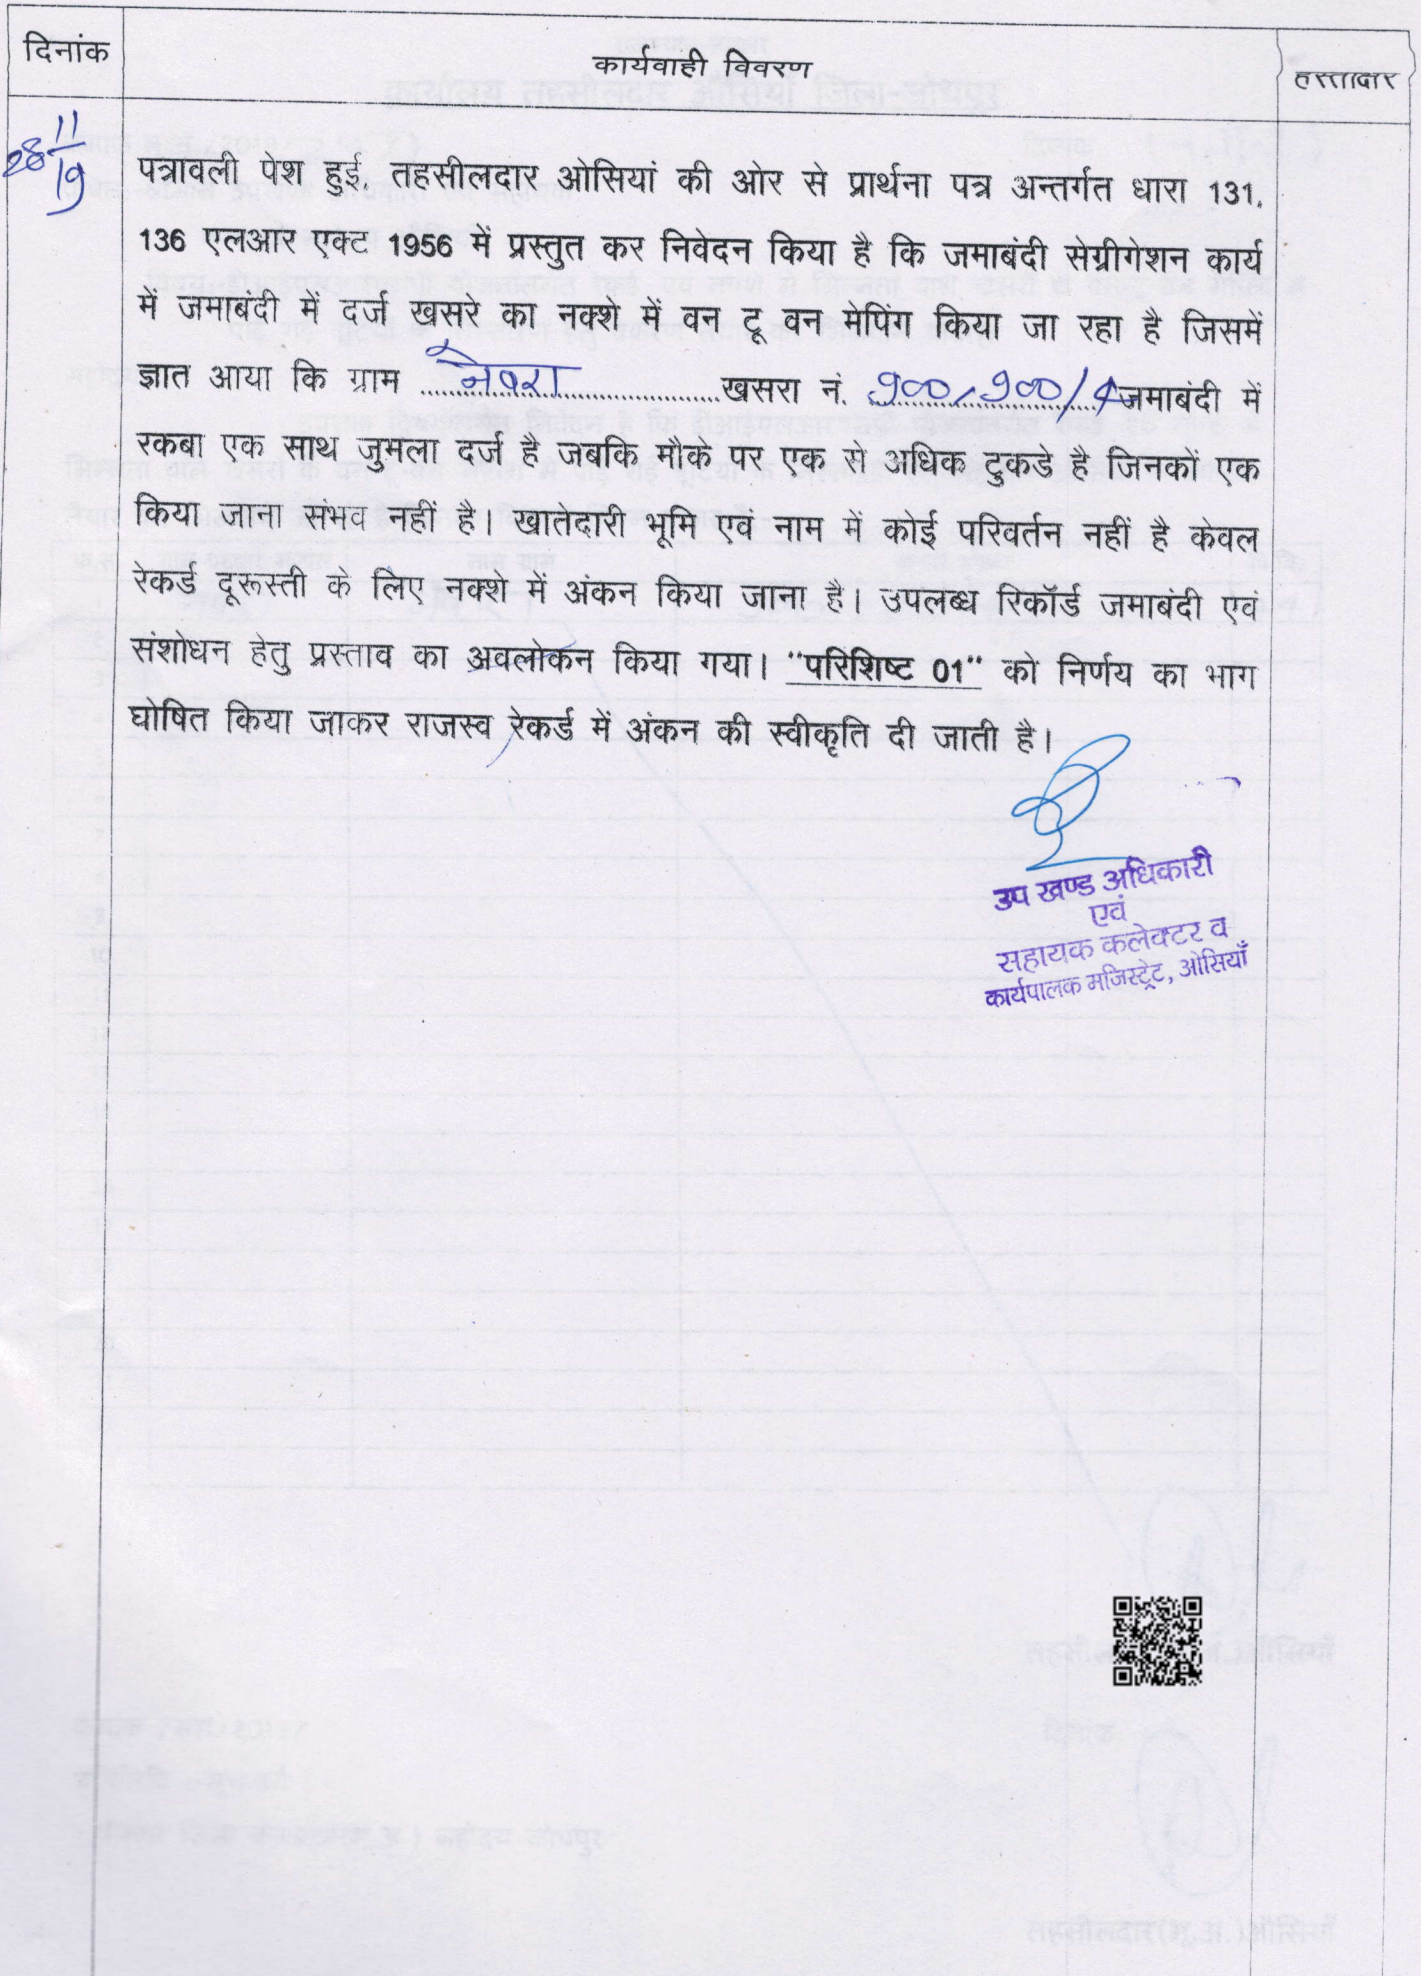 दिनांक
कार्यवाही विवरण
हस्ताक्षर
28/11/19
पत्रावली पेश हुई, तहसीलदार ओसियां की ओर से प्रार्थना पत्र अन्तर्गत धारा 131,
136 एलआर एक्ट 1956 में प्रस्तुत कर निवेदन किया है कि जमाबंदी सेग्रीगेशन कार्य
में जमाबंदी में दर्ज खसरे का नक्शे में वन टू वन मेपिंग किया जा रहा है जिसमें
ज्ञात आया कि ग्राम नेवरा खसरा नं. 900, 900/4 जमाबंदी में
रकबा एक साथ जुमला दर्ज है जबकि मौके पर एक से अधिक टुकडे है जिनकों एक
किया जाना संभव नहीं है। खातेदारी भूमि एवं नाम में कोई परिवर्तन नहीं है केवल
रेकर्ड दूरूस्ती के लिए नक्शे में अंकन किया जाना है। उपलब्ध रिकॉर्ड जमाबंदी एवं
संशोधन हेतु प्रस्ताव का अवलोकन किया गया। "परिशिष्ट 01" को निर्णय का भाग
घोषित किया जाकर राजस्व रेकर्ड में अंकन की स्वीकृति दी जाती है।
उप खण्ड अधिकारी
एवं
सहायक कलेक्टर व
कार्यपालक मजिस्ट्रेट, ओसियाँ